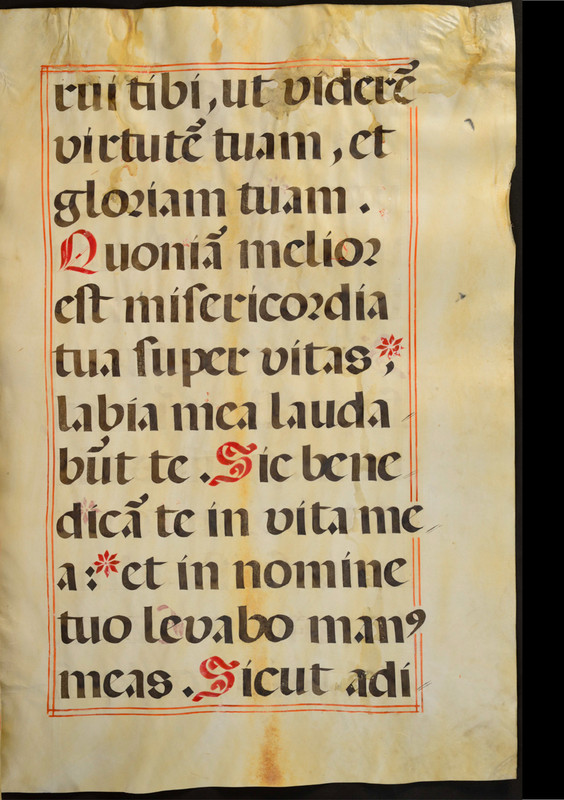 rui tibi, ut viderẽ
virtutẽ tuam, et
gloriam tuam.
Quoniã melior
est misericordia
tua super vitas*,
labia mea lauda
bũt te. Sic bene
dicã te in vita me
a:* et in nomine
tuo levabo manꝰ
meas. Sicut adi